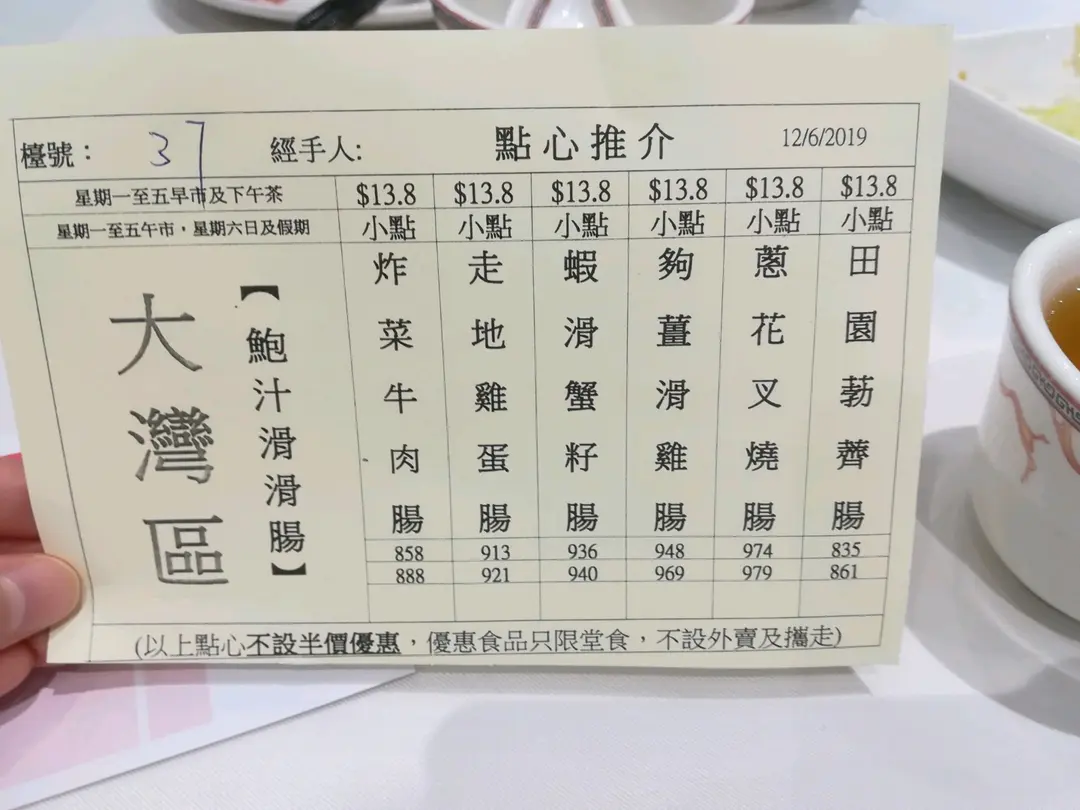 檯號： 37 經手人: 點心推介 12/6/2019
星期一至五早市及下午茶 $13.8 $13.8 $13.8 $13.8 $13.8 $13.8
星期一至五午市，星期六日及假期 小點 小點 小點 小點 小點 小點
大灣區
【鮑汁滑滑腸】
炸菜牛肉腸
走地雞蛋腸
蝦滑蟹籽腸
夠薑滑雞腸
蔥花叉燒腸
田園葧薺腸
858 913 936 948 974 835
888 921 940 969 979 861
(以上點心不設半價優惠，優惠食品只限堂食，不設外賣及攜走)